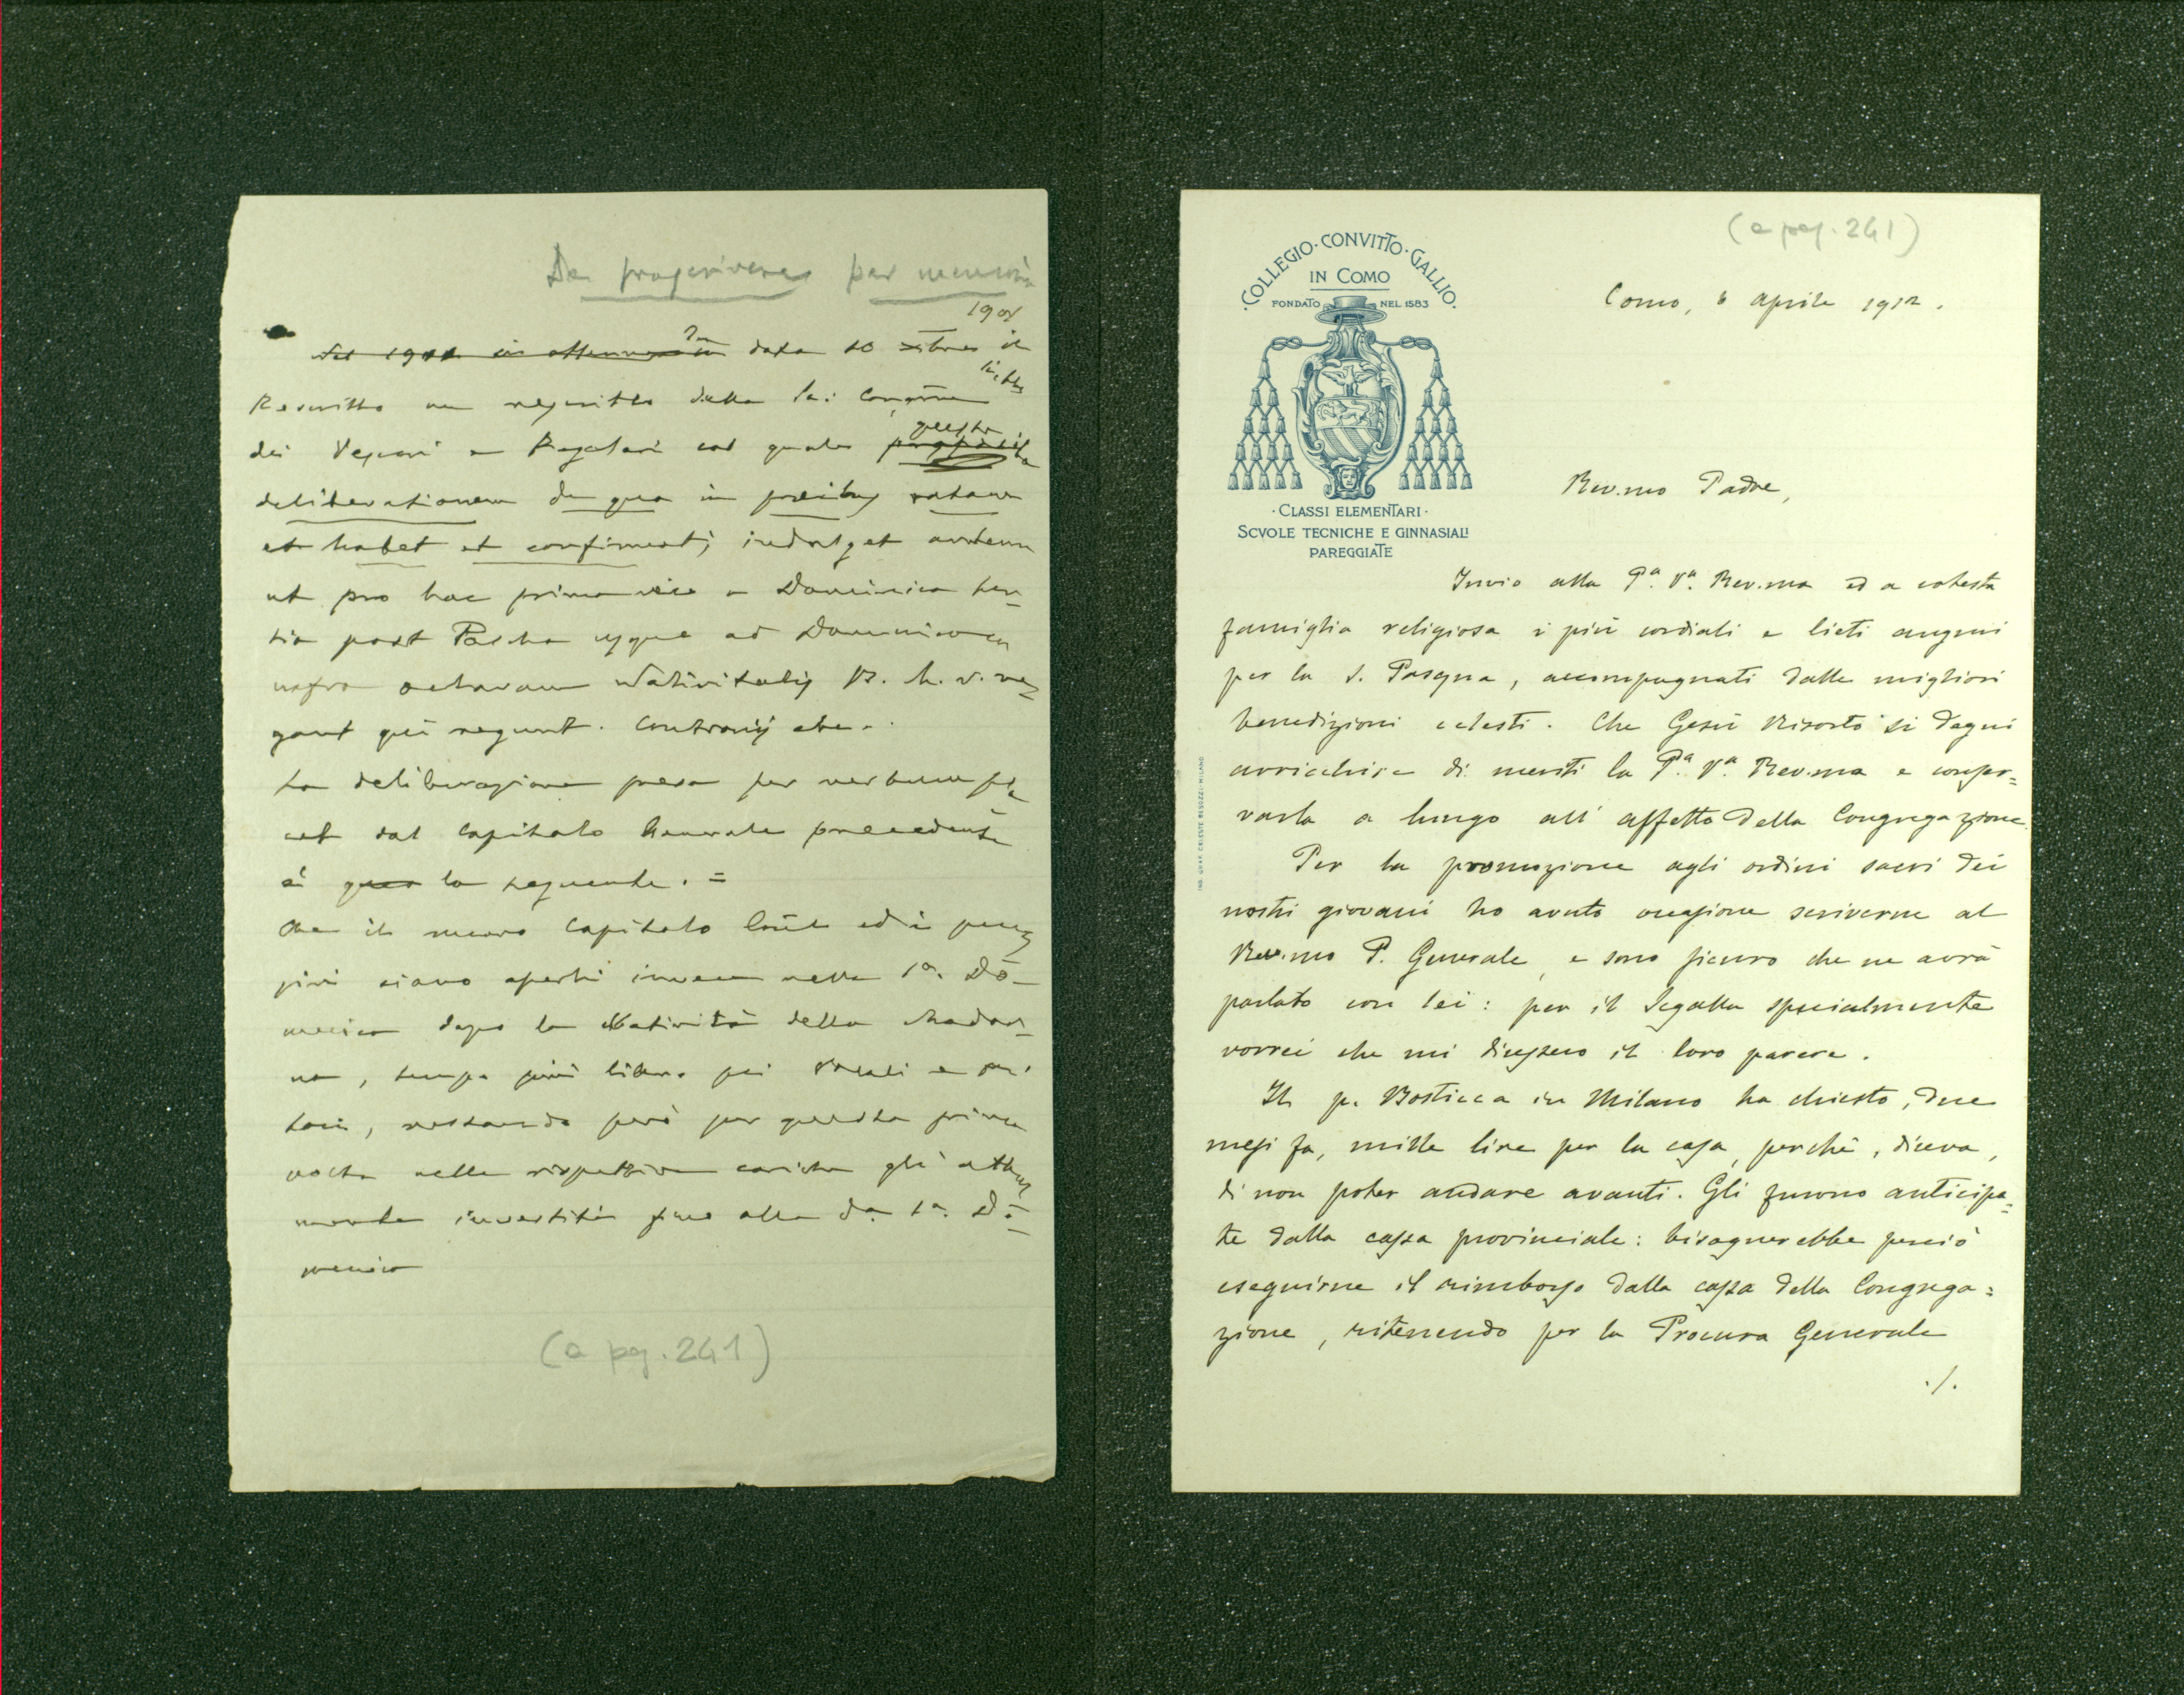 per memoria
1901
data 10 xbre il
Rescritto dalla
dei Vescovi e Regolari col quale
questa
deliberationem de qua in precibus ratam
et habet et confirmat; indulget autem
ut pro hac prima vice a Dominica ter-
tia post Pascha usque ad Dominicam
infra octavam Nativitatis B. M. V. re-
gant qui regunt. Contrariis etc.
La deliberazione presa per verbum pla
cet dal Capitolo Generale precedente
è la seguente. =
Che il nuovo Capitolo
siano aperti invece nella 1ª. Do-
menica dopo la Natività della Madon-
na, tempo più libero pei Vocali e
restando però per questa prima
volta nelle rispettive cariche gli attual
mente investiti fino alla da. 1ª. Do-
menica
(a pag. 241)
(a pag. 241)
·COLLEGIO·CONVITTO·GALLIO·
IN COMO
FONDATO NEL 1583
·CLASSI ELEMENTARI·
SCVOLE TECNICHE E GINNASIALI
PAREGGIATE
IND. GRAF. CELESTE BESOZZI-MILANO
Como, 6 aprile 1912.
Rev.mo Padre,
Invio alla P.a V.a Rev.ma ed a cotesta
famiglia religiosa i più cordiali e lieti auguri
per la S. Pasqua, accompagnati dalle migliori
benedizioni celesti. Che Gesù Risorto si degni
arricchire di meriti la P.a V.a Rev.ma e conser=
varla a lungo all'affetto della Congregazione.
Per la promozione agli ordini sacri dei
nostri giovani ho avuto occasione scriverne al
Rev.mo P. Generale, e sono sicuro che ne avrà
parlato con lei: per il Segalla specialmente
vorrei che mi dicessero il loro parere.
Il p. Bosticca in Milano ha chiesto, due
mesi fa, mille lire per la casa, perchè, diceva,
di non poter andare avanti. Gli furono anticipa=
te dalla cassa provinciale: bisognerebbe perciò
eseguirne il rimborso dalla cassa della Congrega=
zione, ritenendo per la Procura Generale
./.